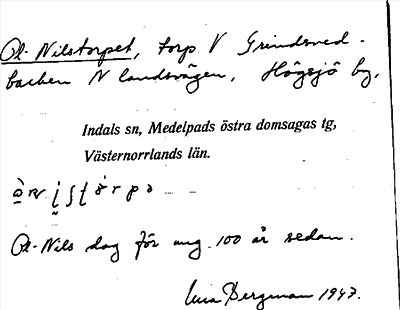 Ol-Nilstorpet, torp V Grindsved-
backen N landsvägen, Högsjö by,
Indals sn, Medelpads östra domsagas tg,
Västernorrlands län.
Ol-Nils dog för ung. 100 år sedan.
Bergman 1947.